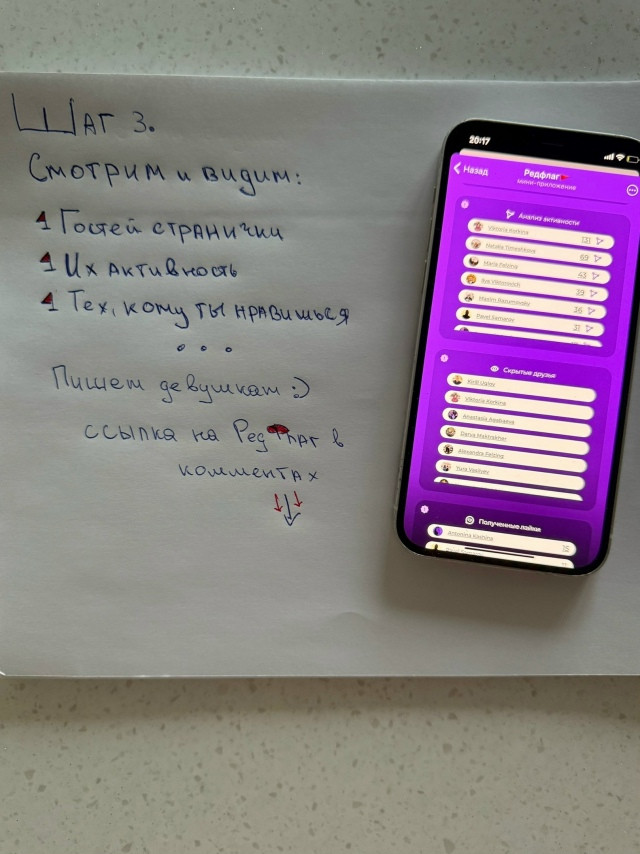 Шаг 3.
Смотрим и видим:
Гостей странички
Их активность
Тех, кому ты нравишься
...
Пишем девушкам :)
ссылка на РедФлаг в
комментах
20:17
Назад
Редфлаг
мини-приложение
Анализ активности
Viktoria Korkina 131
Natalia Timoshkova 69
Maria Palzing 43
Ilya Viktorovich 39
Maxim Razumovsky 36
Pavel Semenov 31
Скрытые друзья
Kirill Ualov
Viktoria Korkina
Anastasia Avdeeva
Darya Mukhakher
Alexandra Palzing
Yura Vasilyev
Полученные лайки
Antonina Kashina 15